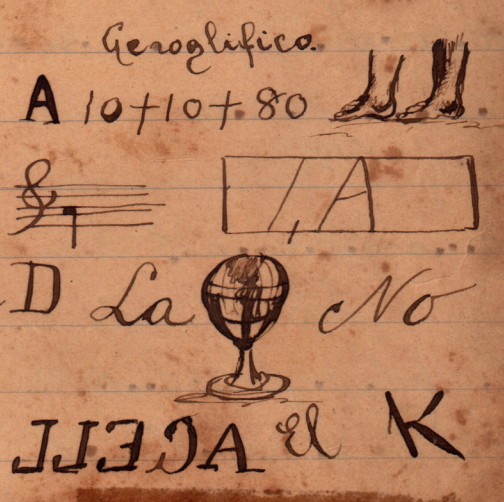 Geroglifico.
A 10+10+80
D La No
⅃⅃ƎƆA El K